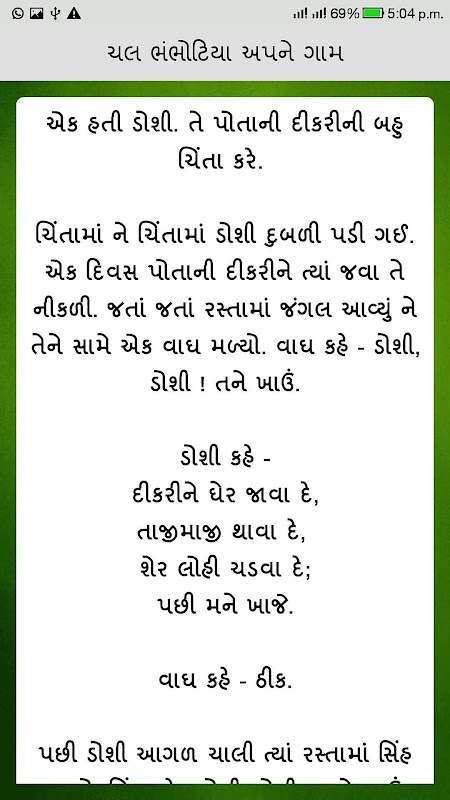 69% 5:04 p.m.
ચલ ભંભોટિયા અપને ગામ
એક હતી ડોશી. તે પોતાની દીકરીની બહુ
ચિંતા કરે.
ચિંતામાં ને ચિંતામાં ડોશી દુબળી પડી ગઈ.
એક દિવસ પોતાની દીકરીને ત્યાં જવા તે
નીકળી. જતાં જતાં રસ્તામાં જંગલ આવ્યું ને
તેને સામે એક વાઘ મળ્યો. વાઘ કહે - ડોશી,
ડોશી ! તને ખાઉં.
ડોશી કહે -
દીકરીને ઘેર જાવા દે,
તાજીમાજી થાવા દે,
શેર લોહી ચડવા દે;
પછી મને ખાજે.
વાઘ કહે - ઠીક.
પછી ડોશી આગળ ચાલી ત્યાં રસ્તામાં સિંહ